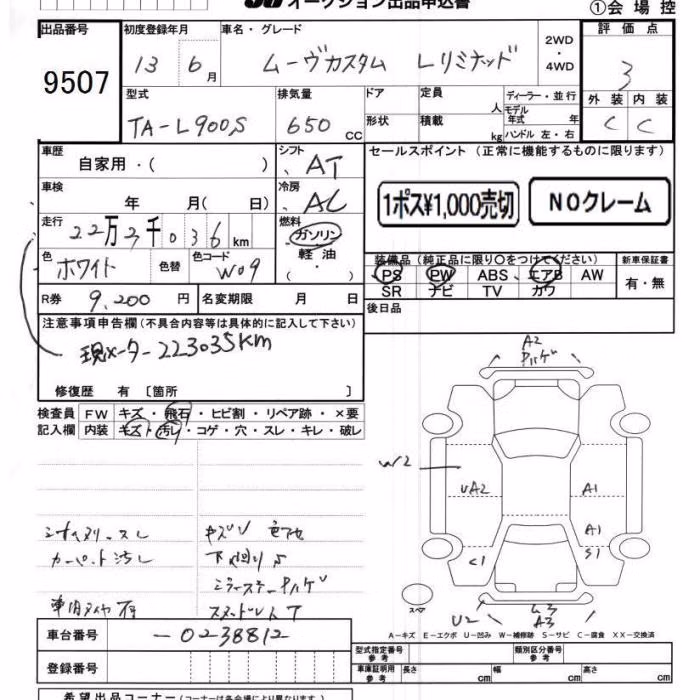 オークション出品申込書
①会場控
出品番号
9507
初度登録年月
13 6月
車名・グレード
ムーヴカスタム Lリミテッド
2WD
・
4WD
評価点
3
外装 内装
C C
型式
TA-L900S
排気量
650 cc
ドア
形状
定員 人
積載 kg
ディーラー・並行
モデル年式 年
ハンドル 左・右
車歴
自家用・( )
シフト
AT
車検
年 月( 日)
冷房
AC
走行
22万3千036km
燃料
ガソリン
軽油
( ・ )
色
ホワイト
色替
色コード
W09
R券
9,200円
名変期限 月 日
セールスポイント (正常に機能するものに限ります)
1ポス¥1,000売切
NOクレーム
装備品(純正品に限り〇をつけてください)
新車保証書
PS PW ABS エアB AW
SR ナビ TV カワ
有・無
後日品
注意事項申告欄(不具合内容等は具体的に記入して下さい)
現メーター223035KM
修復歴 有 〔箇所 〕
検査員記入欄
FW キズ・飛石・ヒビ割・リペア跡・×要
内装 キズ・汚レ・コゲ・穴・スレ・キレ・破レ
カーペット汚レ
A2
W2
UA2
A1
A1
S1
C1
U2
A3
A-キズ E-エクボ U-凹み W-補修跡 S-サビ C-腐食 XX-交換済
車台番号
-0238812
登録番号
型式指定番号
参考
類別区分番号
参考
車庫証明用
参考
長さ cm
幅 cm
高さ cm
希望出品コーナー